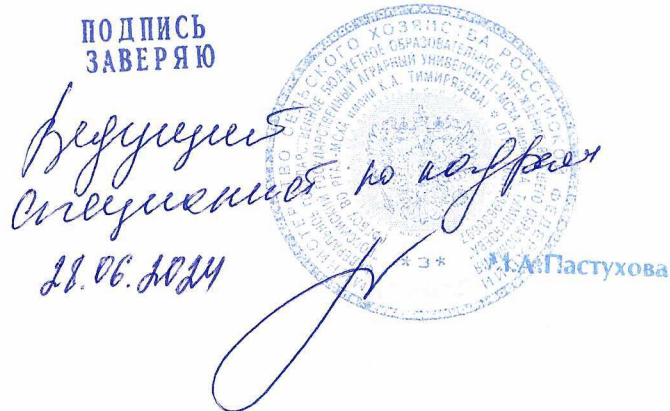 ПОДПИСЬ
ЗАВЕРЯЮ
Ведущий
специалист по кадрам
28.06.2024
М.А.Пастухова
ХОЗЯЙСТВА РОССИЙСКО
БЮДЖЕТНОЕ ОБРАЗОВАТЕЛЬНОЕ
АГРАРНЫЙ УНИВЕРСИТЕТ-МСХА
ИМЕНИ К.А. ТИМИРЯЗЕВА
*3*